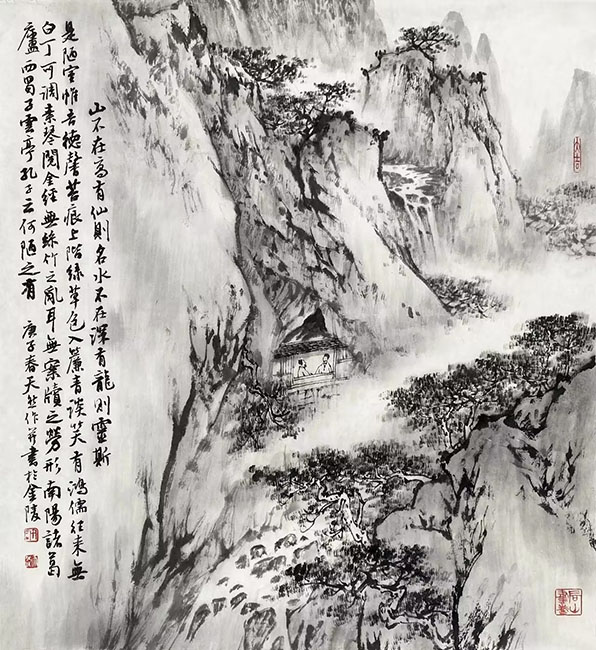 山不在高有仙則名水不在深有龍則靈斯
是陋室惟吾德馨苔痕上階綠草色入簾青談笑有鴻儒往來無
白丁可調素琴閱金經無絲竹之亂耳無案牘之勞形南陽諸葛
廬西蜀子雲亭孔子云何陋之有 庚子春天然作并書於金陵